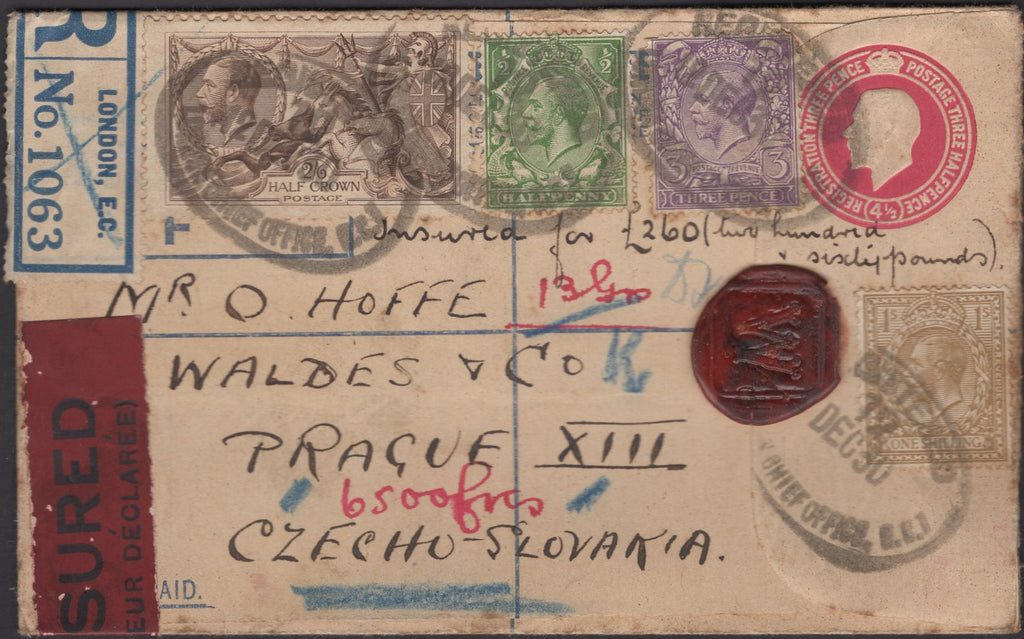 R
No. 1063
LONDON, E.C.
2/6
HALF CROWN
POSTAGE
½ ½
HALFPENNY
3 3
THREE PENCE
REGISTRATION THREE PENCE POSTAGE THREE HALFPENCE
(4½)
T
CHIEF OFFICE, E.C.1
Insured for £260 (two hundred
& sixty pounds).
MR O. HOFFE
13 Grs
WALDES & CO
R
PRAGUE XIII
6500 frcs
CZECHO-SLOVAKIA.
1S 1S
ONE SHILLING
DEC 30
CHIEF OFFICE, E.C.1
SURED
EUR DÉCLARÉE)
AID.